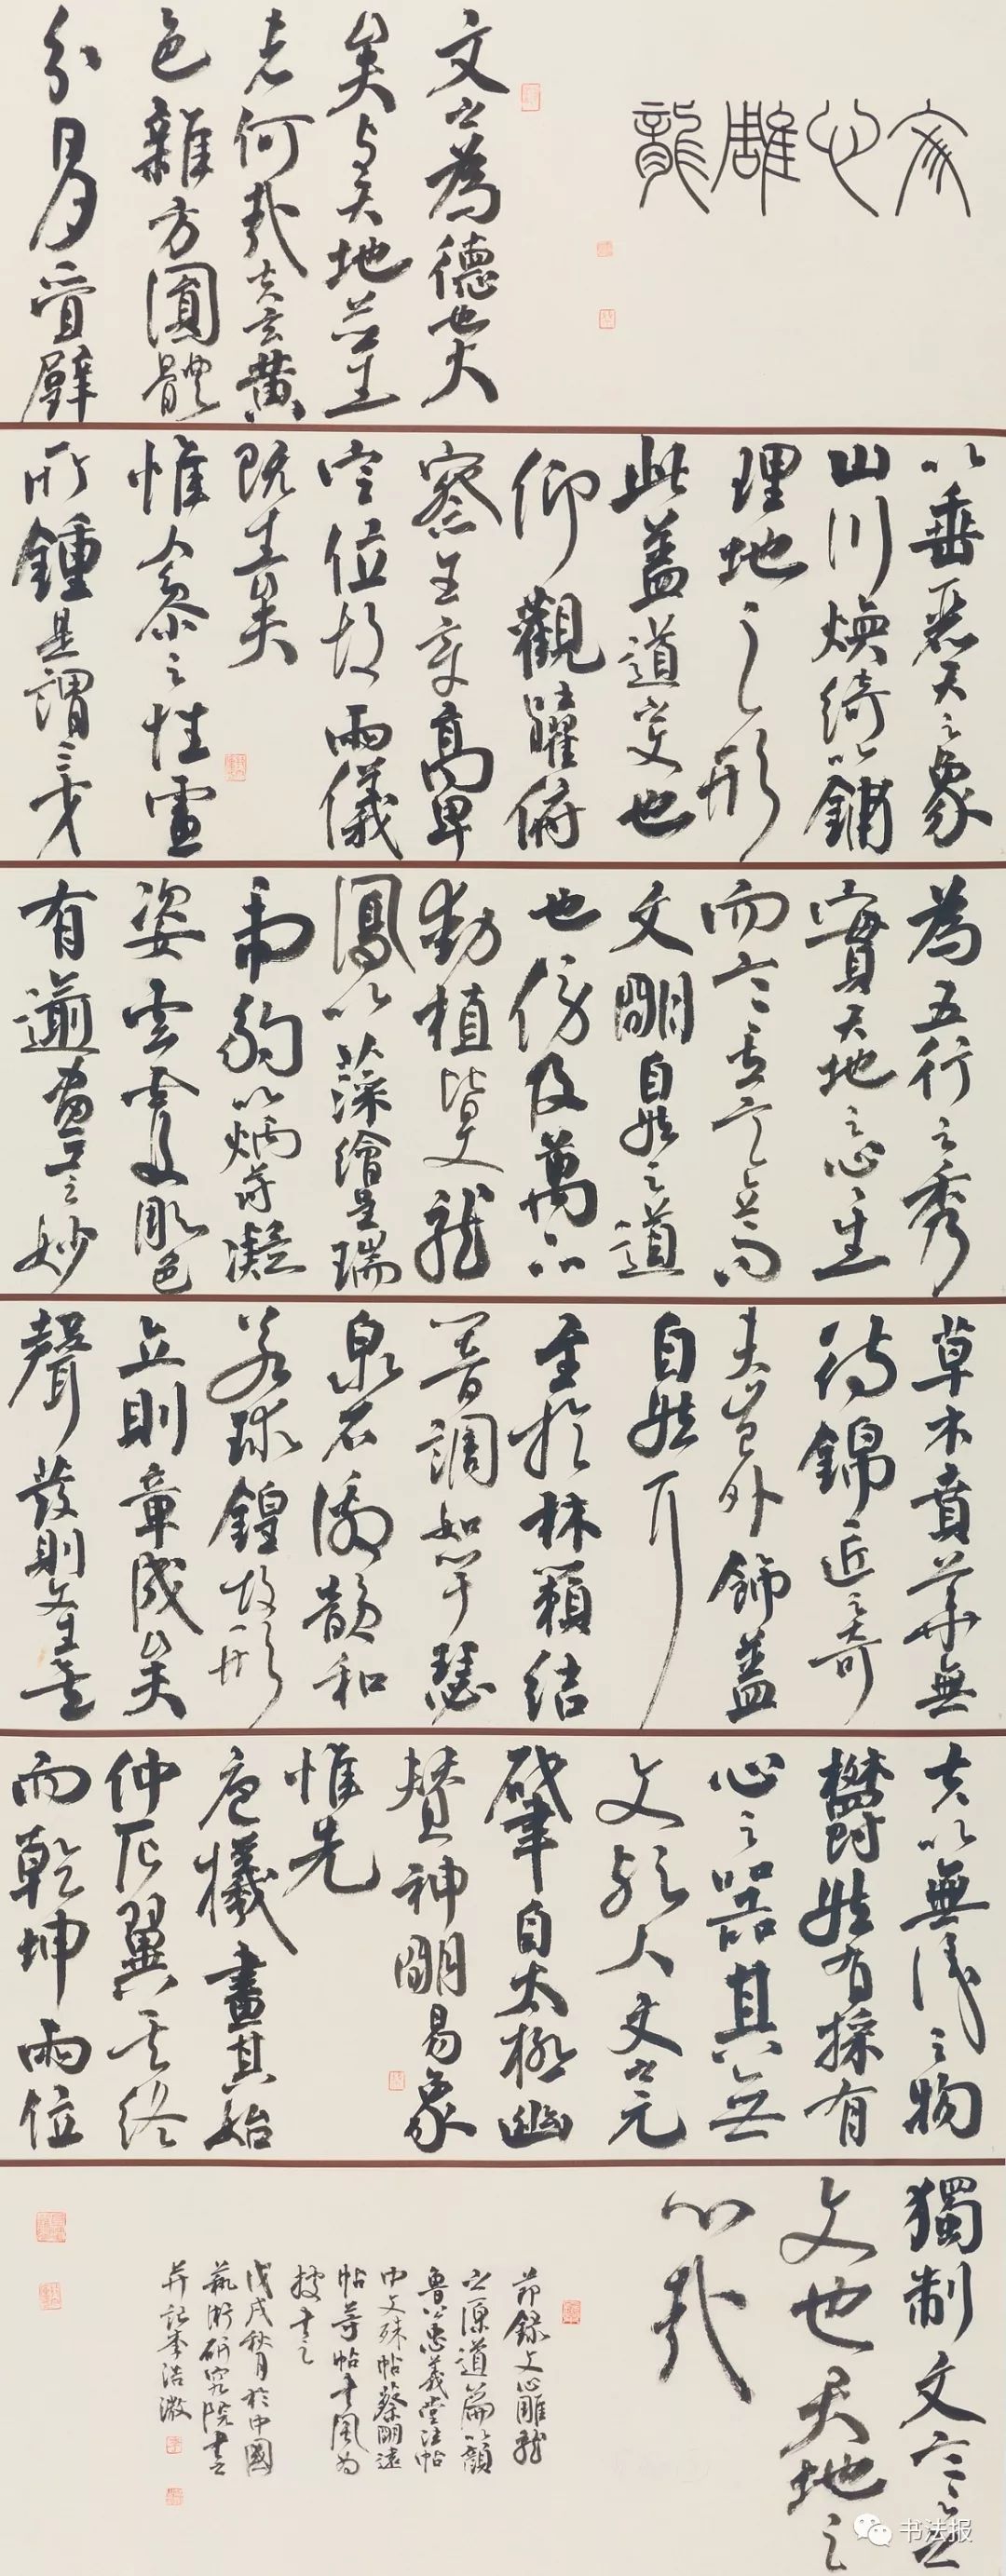 文心雕龍
文之為德也大
矣與天地並生
者何哉夫玄黃
色雜方圓體
分日月疊璧
以垂麗天之象
山川煥綺以鋪
理地之形
此蓋道之文也
仰觀曜俯
察含章高卑
定位故兩儀
既生矣
惟人參之性靈
所鍾是謂三才
為五行之秀
實天地之心生
而言立言立而
文明自然之道
也傍及萬品
動植皆文龍
鳳以藻繪呈瑞
虎豹以炳蔚凝
姿雲霞雕色
有逾畫工之妙
草木賁華無
待錦匠之奇
夫豈外飾蓋
自然耳
至於林籟結
響調如竽瑟
泉石激韻和
若球鍠故形
立則章成矣
聲發則文生矣
夫以無識之物
鬱然有採有
心之器其無
文歟人文之元
肇自太極幽
贊神明易象
惟先
庖犧畫其始
仲尼翼其終
而乾坤兩位
獨制文言言之
文也天地之
心哉
節錄文心雕龍
之原道篇以顏
魯公忠義堂法帖
中文殊帖蔡明遠
帖等帖書風為
據書之
戊戌秋月於中國
藝術研究院書
並記李浩
书法报